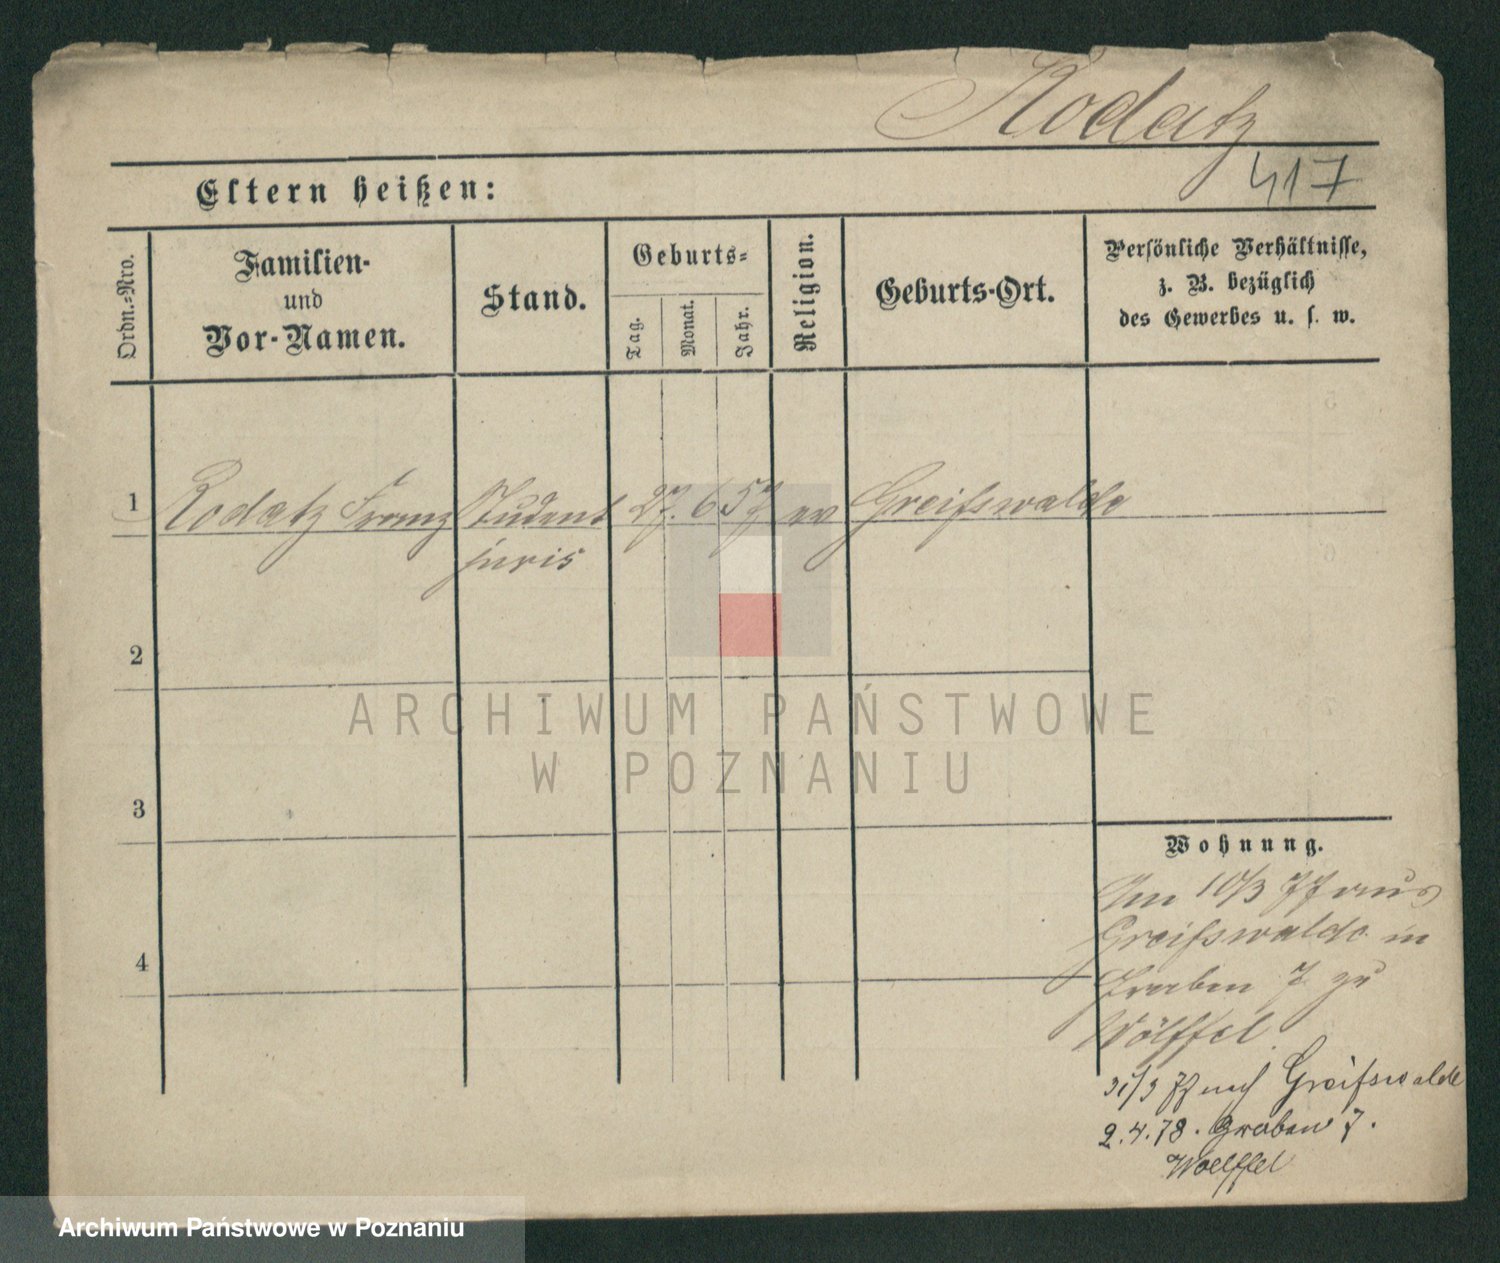 Rodatz
417
Eltern heißen:
Ordn.-Nro.
Familien-
und
Vor-Namen.
Stand.
Geburts-
Tag.
Monat.
Jahr.
Religion.
Geburts-Ort.
Persönliche Verhältnisse,
z. B. bezüglich
des Gewerbes u. s. w.
1 Rodatz Franz Student 27. 6 57 ev Greifswalde
juris
2
3
4
Wohnung.
Am 10/3 77 aus
Greifswalde in
Graben 7 zu
Wölffel.
31/3 77 nach Greifswalde
2.4.78. Graben 7.
Woelffel
ARCHIWUM PAŃSTWOWE
W POZNANIU
Archiwum Państwowe w Poznaniu